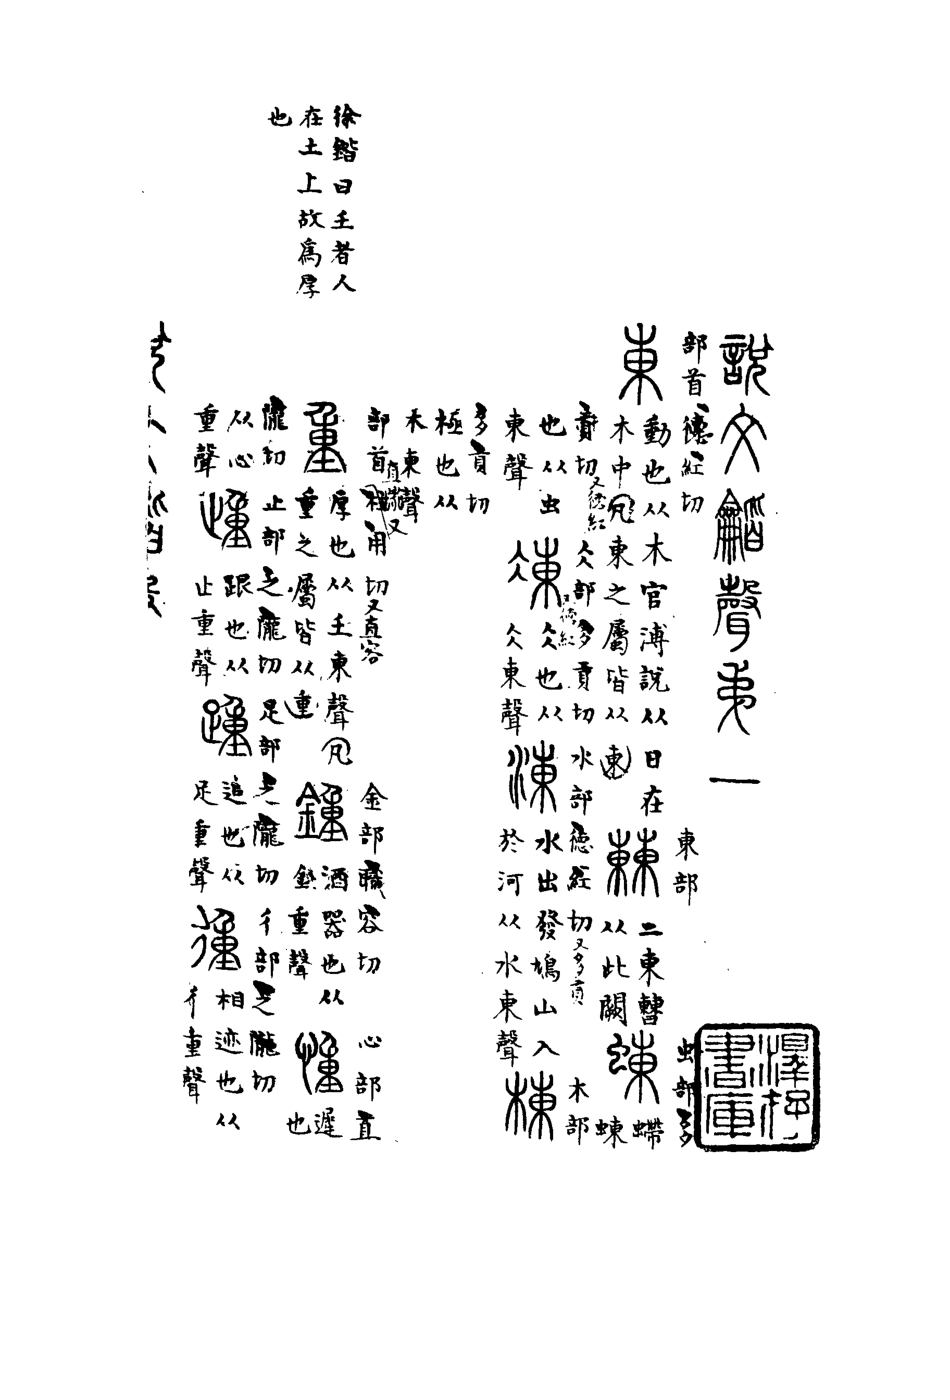 徐鍇曰𡈼者人
在土上故爲厚
也
說文龤聲弟一
部首德紅切 東部 虫部多
東 動也从木官溥說从日在 𣡌 二東𣍘 蝀 螮
木中凡東之屬皆从東 从此闕 蝀
貢切又德紅 仌部多貢切又德紅 水部德紅切又多貢 木部
也从虫 涷 仌也从 涷 水出發鳩山入 棟
東聲 仌東聲 於河从水東聲
多貢切
極也从
木東聲
部首 用切又直容 金部職容切 心部直
重 厚也从𡈼東聲凡 鍾 酒器也从 㣫 遲
重之屬皆从重 金重聲 也
隴切 止部之隴切 足部之隴切 彳部之隴切
从心 歱 跟也从 踵 追也从 徸 相迹也从
重聲 止重聲 足重聲 彳重聲